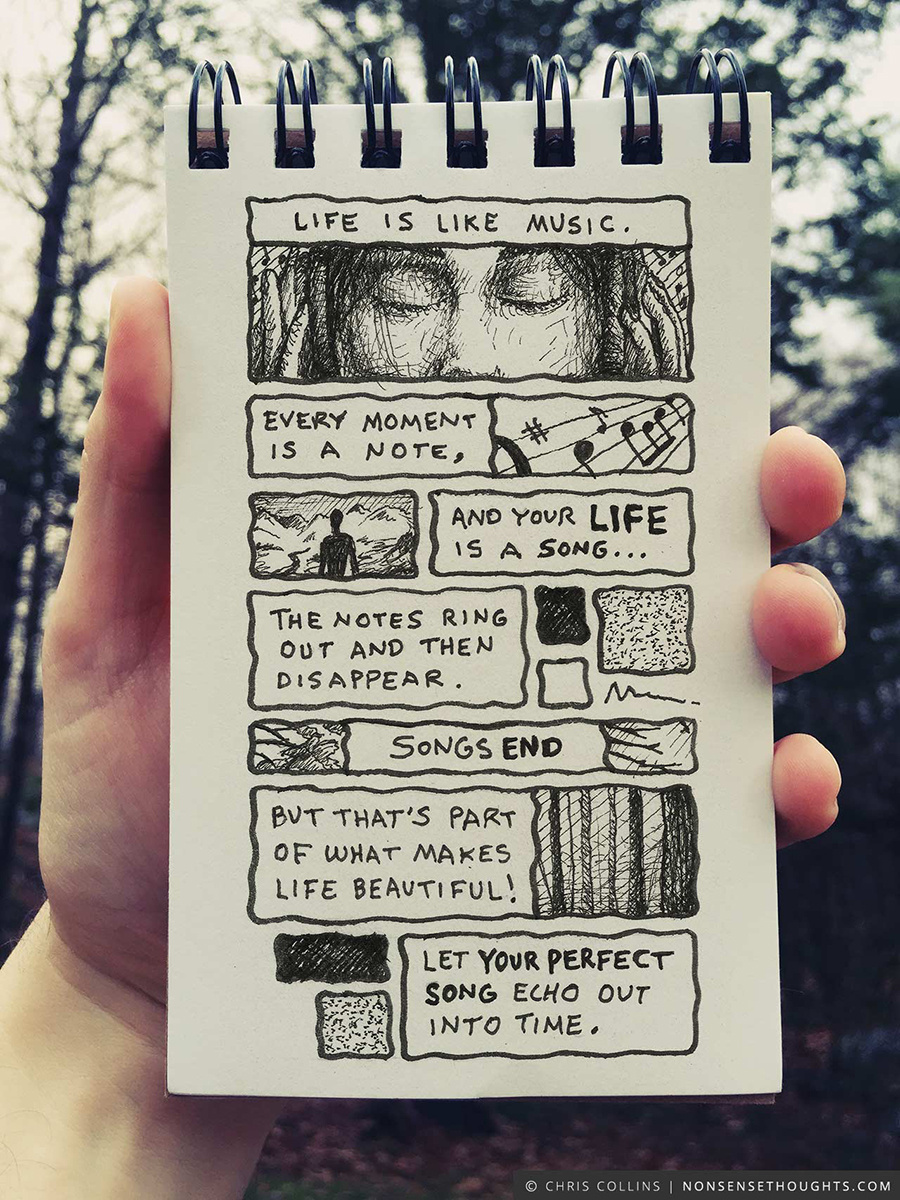 LIFE IS LIKE MUSIC.
EVERY MOMENT
IS A NOTE,
AND YOUR LIFE
IS A SONG...
THE NOTES RING
OUT AND THEN
DISAPPEAR.
SONGS END
BUT THAT'S PART
OF WHAT MAKES
LIFE BEAUTIFUL!
LET YOUR PERFECT
SONG ECHO OUT
INTO TIME.
© CHRIS COLLINS | NONSENSETHOUGHTS.COM